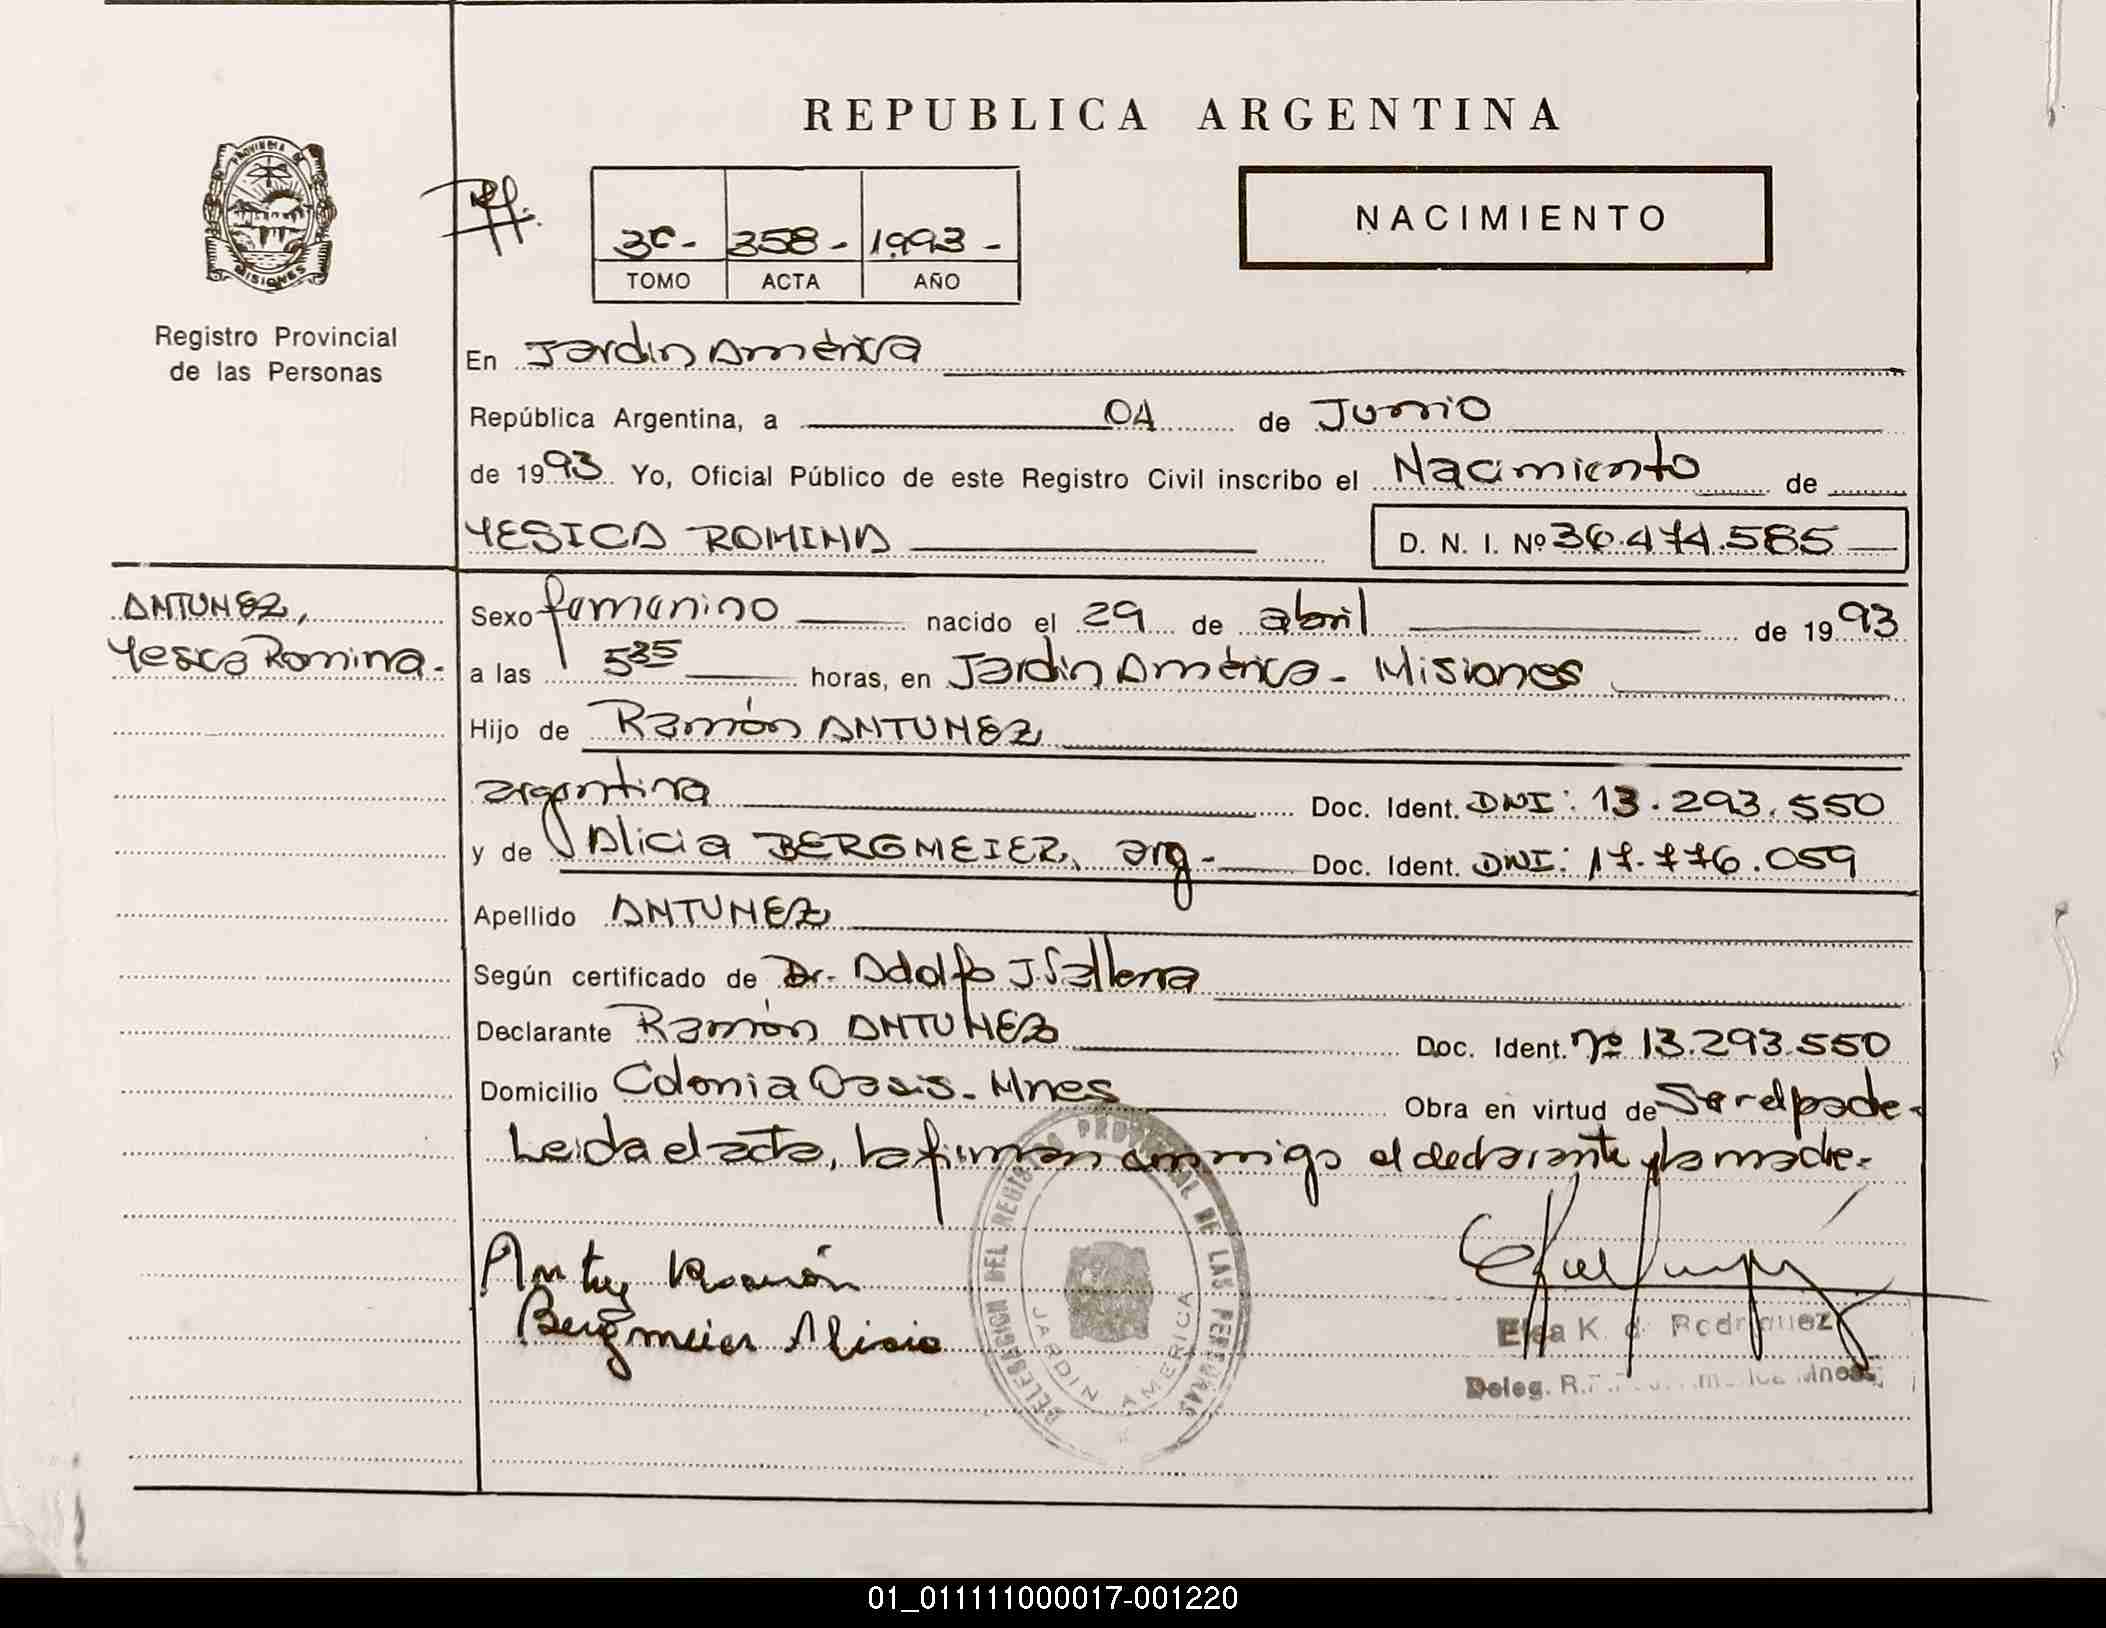 REPUBLICA ARGENTINA
PROVINCIA DE MISIONES
3c- 358- 1993-
TOMO ACTA AÑO
NACIMIENTO
Registro Provincial
de las Personas
En Jardin América
República Argentina, a 04 de Junio
de 1993 Yo, Oficial Público de este Registro Civil inscribo el Nacimiento de
YESICA ROMINA D. N. I. Nº 36.474.585
ANTUNEZ,
Yesica Romina.
Sexo femenino nacido el 29 de abril de 1993
a las 5 35 horas, en Jardin América - Misiones
Hijo de Ramón ANTUNEZ
argentina Doc. Ident. DNI: 13.293.550
y de Alicia BERGMEIER, arg- Doc. Ident. DNI: 17.776.059
Apellido ANTUNEZ
Según certificado de Dr. Adolfo J.
Declarante Ramón ANTUNEZ Doc. Ident. Nº 13.293.550
Domicilio Colonia Oasis - Mnes Obra en virtud de Ser el padre-
Leida el acta, la firman conmigo el declarante y la madre.
Ramón
Bergmeier Alicia
DELEGACION DEL REGISTRO PROVINCIAL DE LAS PERSONAS
JARDIN AMERICA
Elsa K. d Rodriguez
Deleg. R.
01_011111000017-001220